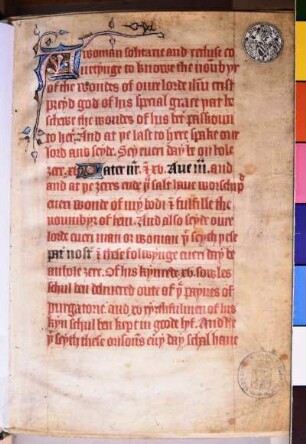 A woman solitarie and recluse co
ueytynge to knowe the noubyr
of the woundes of oure lorde ihu crist
preyd god of his special grace þat he
schewe the woundes of his passioun
to her. And at þe last oure
lord and seyde. Sey euery day be an hole
ȝere. xv Pater nr̄ . & xv. Aue m̄. and
and at þe ȝeres ende þu salt haue worschypd
euery wonde of my bodi & fulfille the
noumbyr of hem. And also seyde oure
lorde euery man or woman þt seyth þese
pat nost & these folwynge euery day be
an hole ȝere. Of his kynrede. xv. sowles
schul ben delyuered oute of þe paynes of
purgatorie. and. xv ryȝthfulmen of his
kyn schul ben kept in goode lyf. And he
þt seyth these orisons euery day schal haue